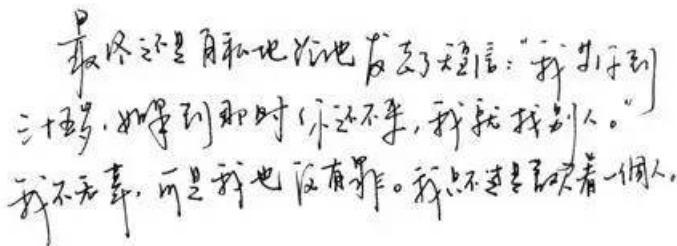 最终还是自私地给他发去了短信：“我等你到
三十五岁，如果到那时你还不来，我就找别人。”
我不无辜，可是我也没有罪。我只不过是喜欢着一個人。